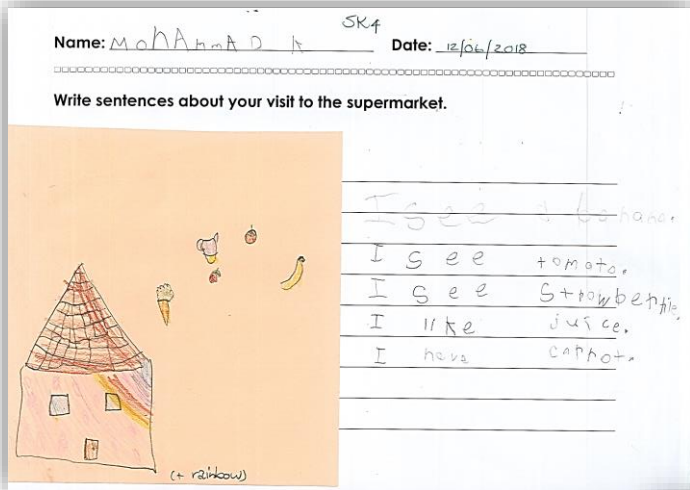 SK4
Name: MohAmmAD A Date: 12/06/2018
Write sentences about your visit to the supermarket.
I see a banana.
I see tomato.
I see Strowberrie.
I like juice.
I have carrot.
(+ rainbow)